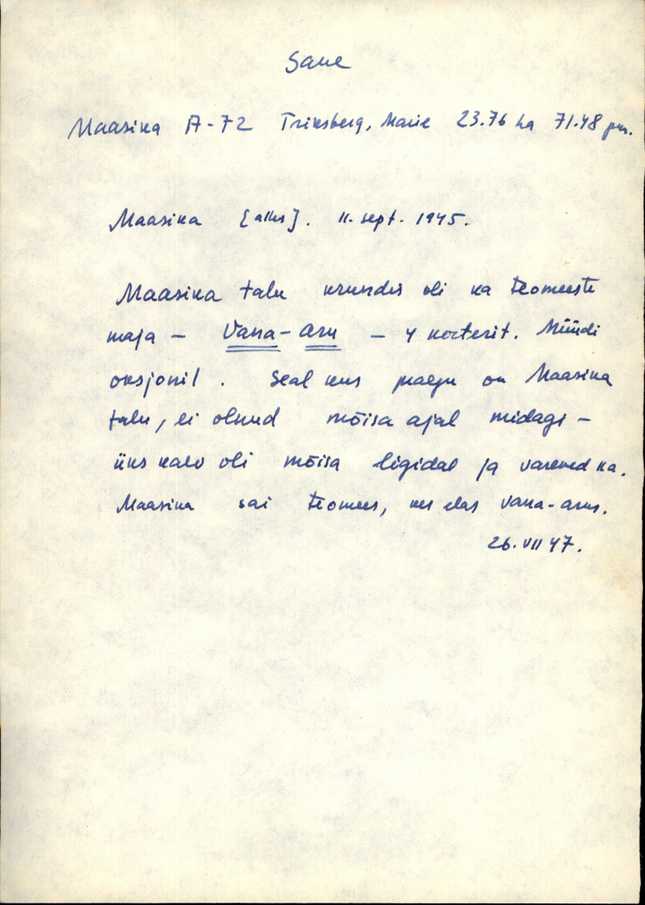 Saue
Maasika A-72 Triksberg, Marie 23.76 ha 71.48 pm.
Maasika [alus]. 11. sept. 1945.
Maasika talu krundis oli ka teomeeste
maja - Vana-aru - 4 korterit. Müüdi
oksjonil. Seal kus praegu on Maasika
talu, ei olnud mõisa ajal midagi -
üks kaev oli mõisa ligidal ja varemed ka.
Maasika sai teomees, kes elas Vana-arus.
26. VII 47.